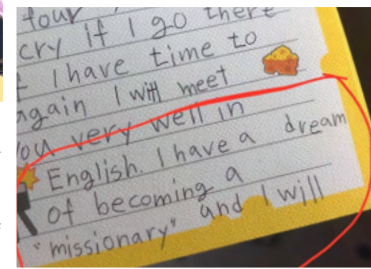 tour
cry if I go there
I have time to
again I will meet
you very well in
English. I have a dream
of becoming a
"missionary" and I will